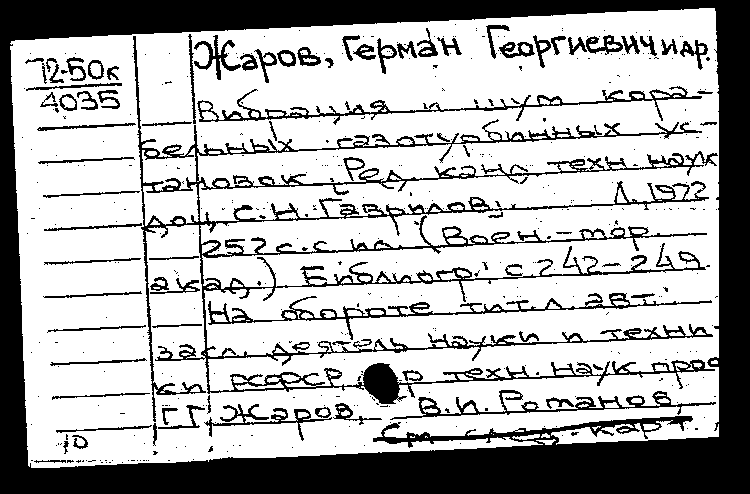 72-50к
4035
Жаров, Герман Георгиевич и др.
Вибрация и шум кора-
бельных газотурбинных ус-
тановок. [Ред. канд. техн. наук
доц. С.Н. Гаврилов]. Л., 1972.
252 с. с ил. (Воен.-мор.
акад.) Библиогр.: с. 242-249.
На обороте тит. л. авт.:
засл. деятель науки и техни-
ки РСФСР, р техн. наук, проф
Г.Г. Жаров, В.И. Романов,
См. след. карт.
10